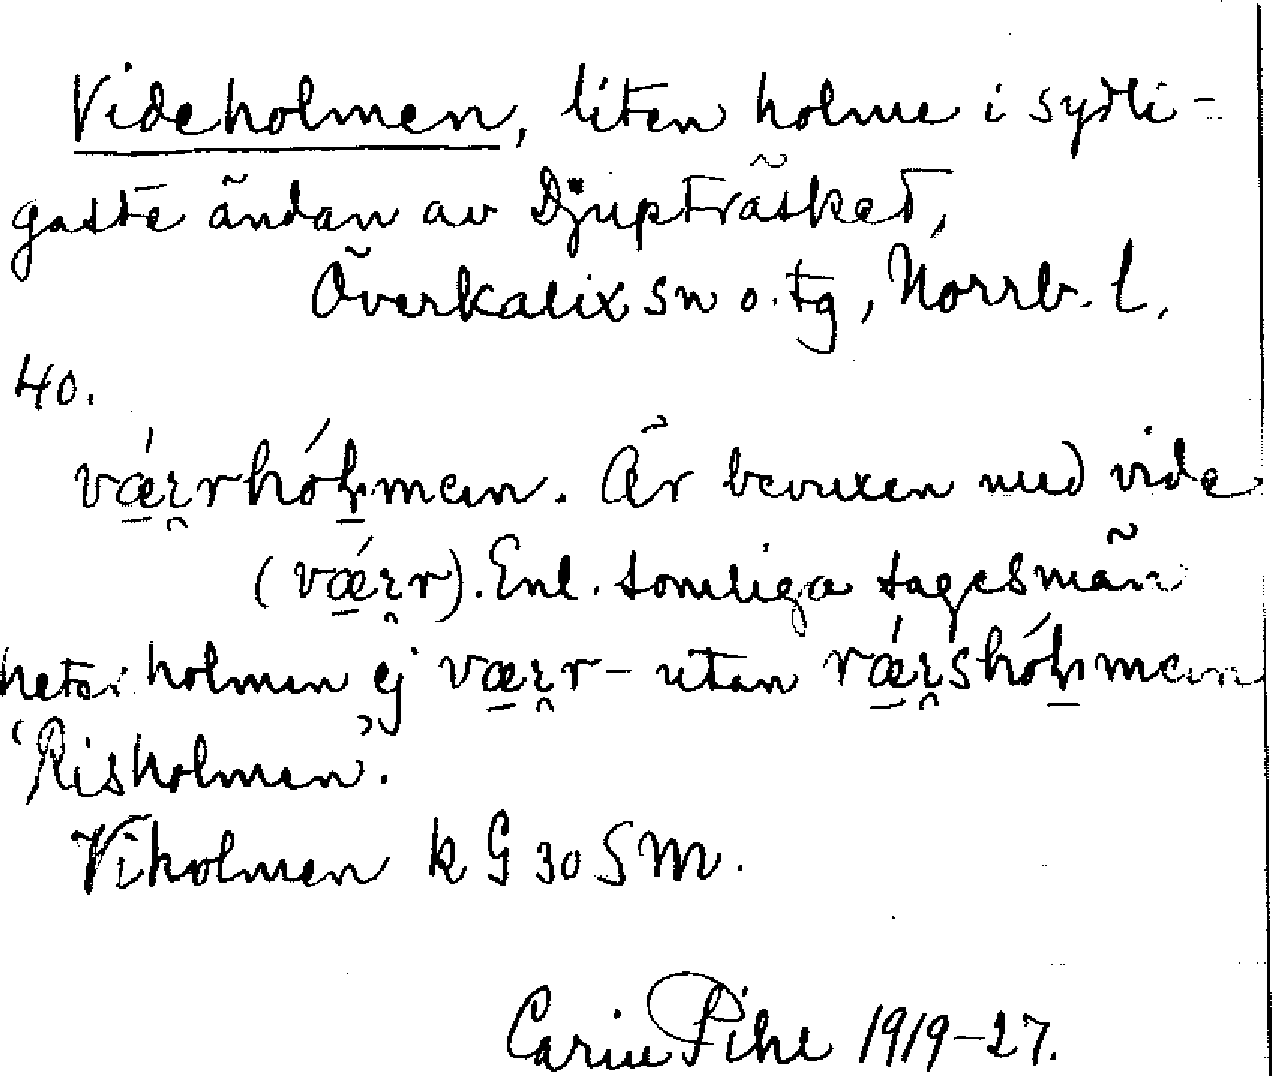 Videholmen, liten holme i sydli-
gaste ändan av Djupträsket,
Överkalix sn o. tg, Norrb. l.
40.
vǽrrhóļmen. Är bevuxen med vide
(vǽrr). Enl. somliga sagesmän
heter holmen ej værr- utan rǽrshóļmen
‘Risholmen’.
Viholmen k G 30 S M.
Carin Pihl 1919-27.